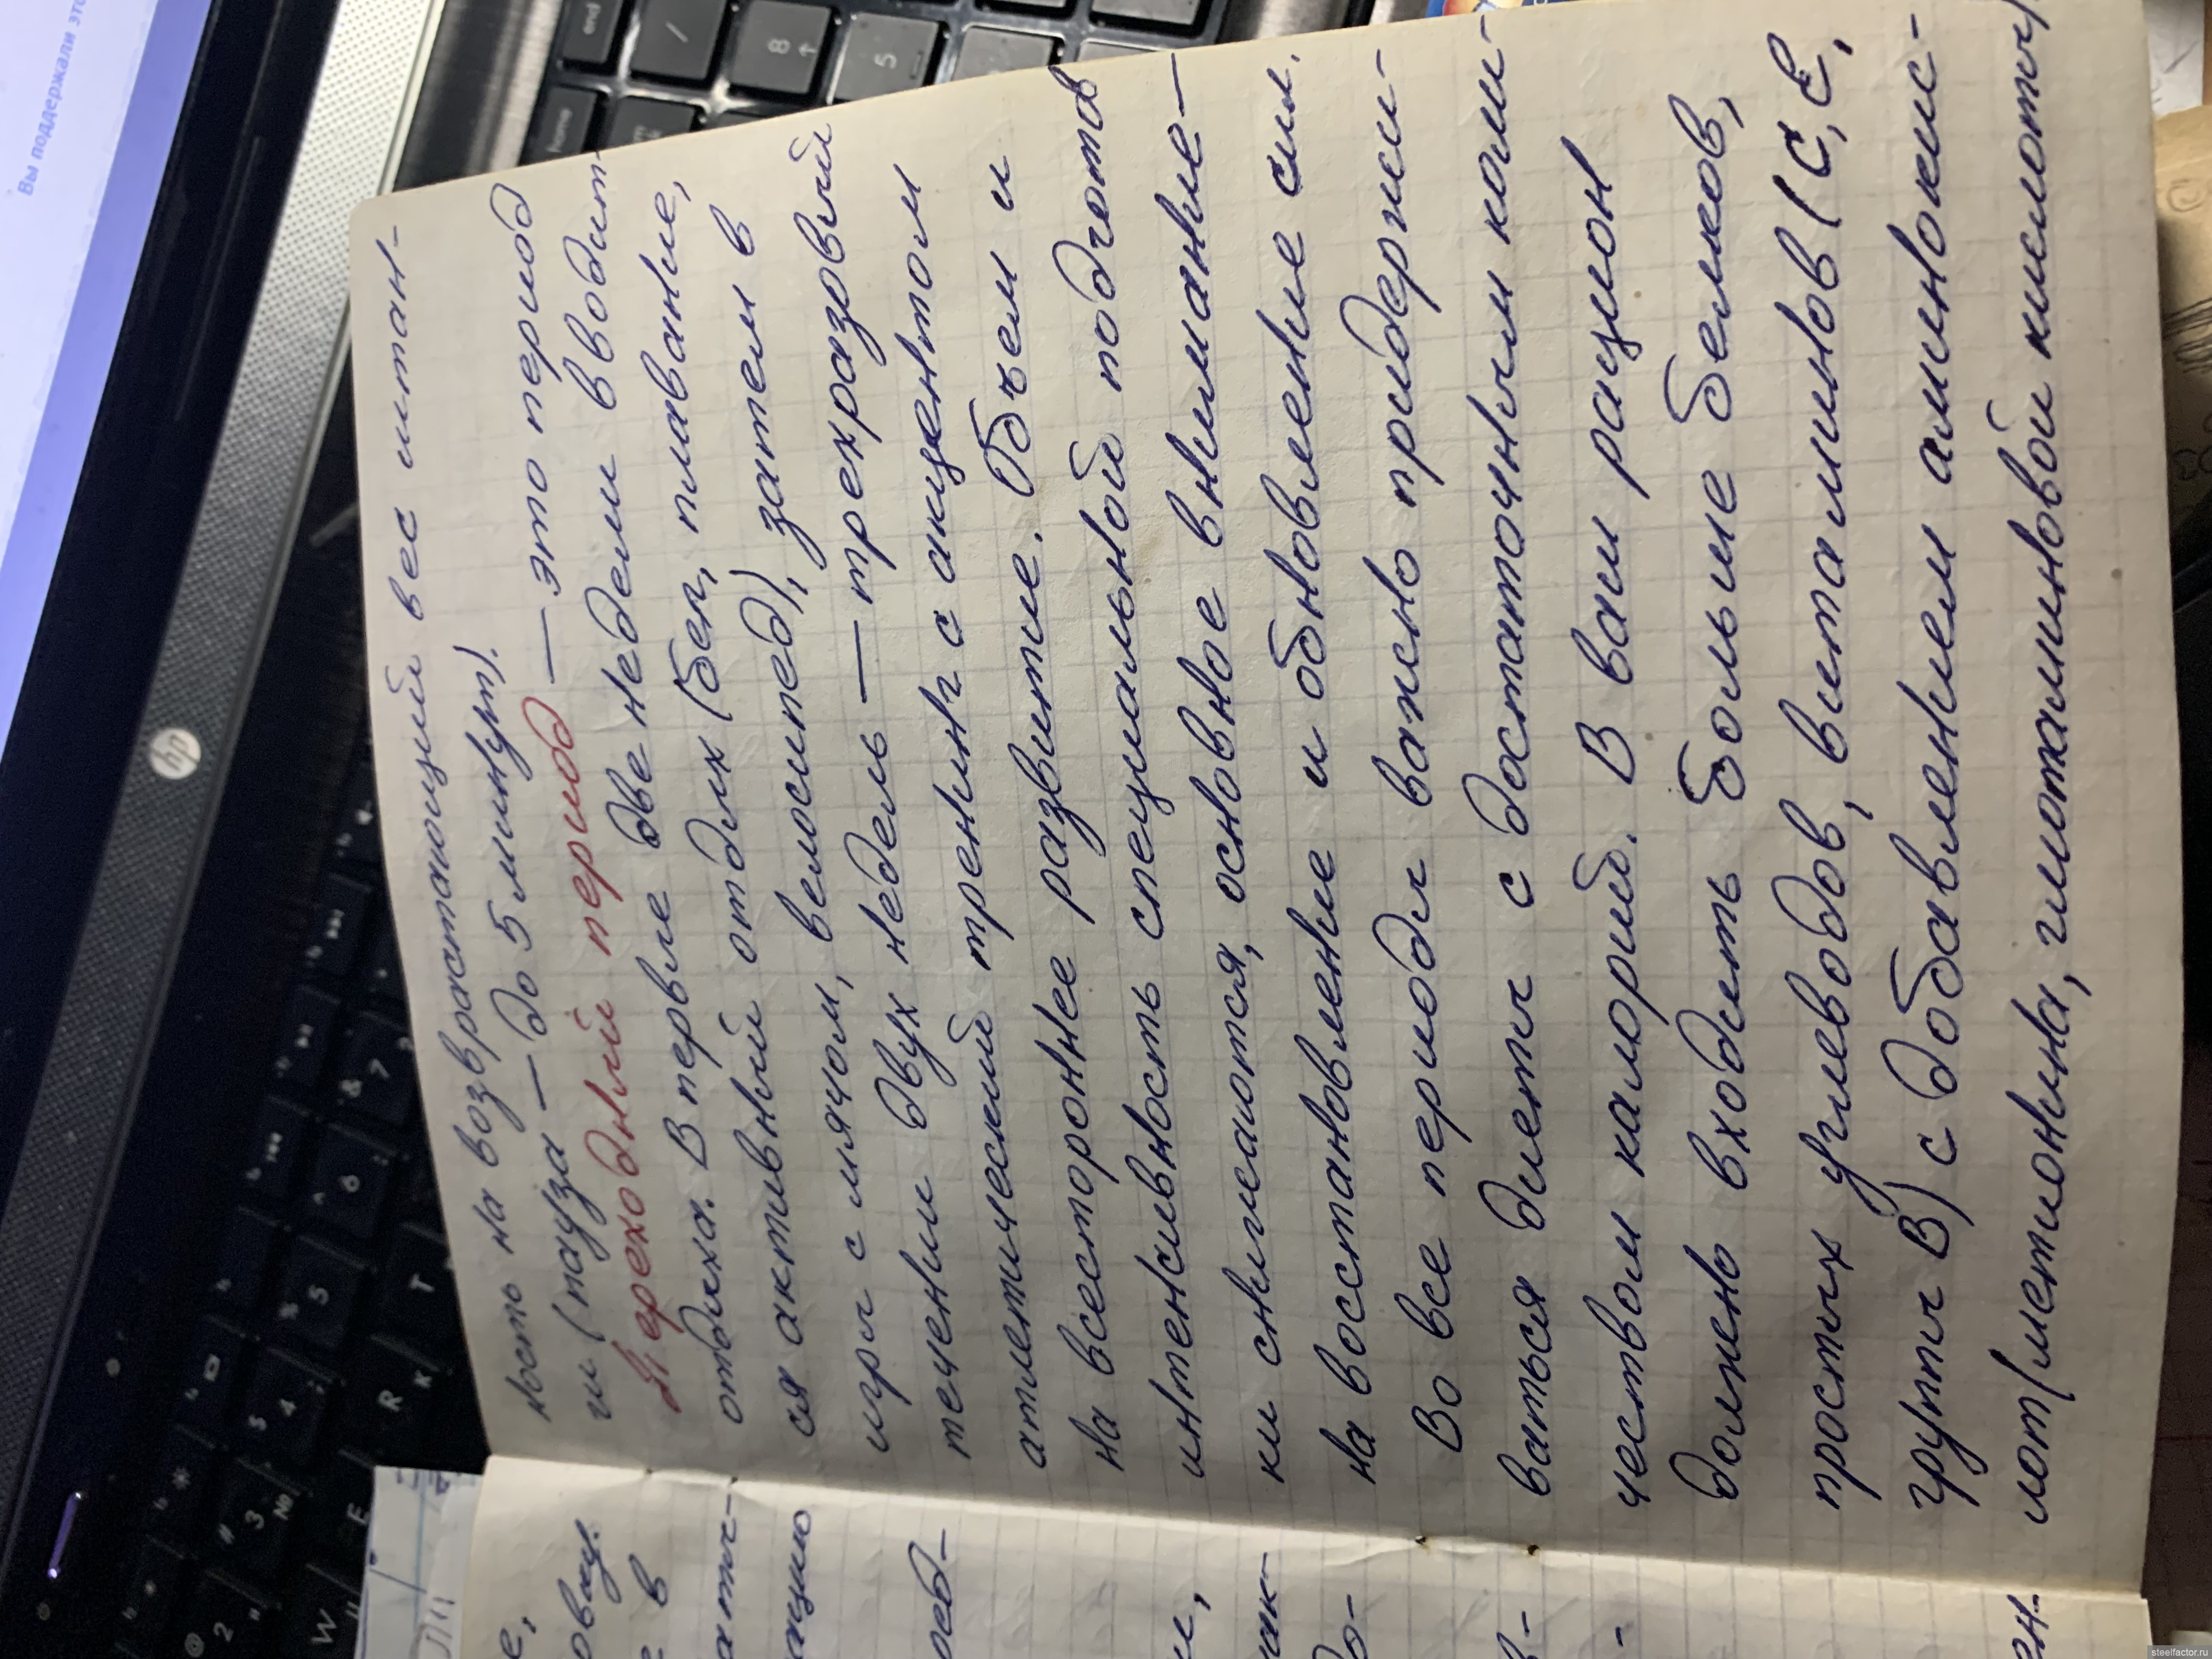 ность на возврастающий вес штан-
ги (пауза — до 5 минут).
Переходный период — это период
отдыха. В первые две недели вводит-
ся активный отдых (бег, плавание,
игры с мячом, велосипед), затем в
течении двух недель — трехразовый
атлетический тренинг с акцентом
на всесторонее развитие. Объем и
интенсивность специальной подготов
ки снижаются, основное внимание —
на восстановление и обновление сил.
Во все периоды важно придержи-
ваться диеты с достаточным коли-
чеством калорий. В ваш рацион
должно входить больше белков,
простых углеводов, витаминов (С, Е,
группы В) с добавлением аминокис-
лот (метионина, глютаминовой кислоты)
Вы поддержали это
hp
end
home
/
8
5
2
3
№
4
5
6
7
&
W
E
R
К
T
е,
е в
ред-
ен-
steelfactor.ru